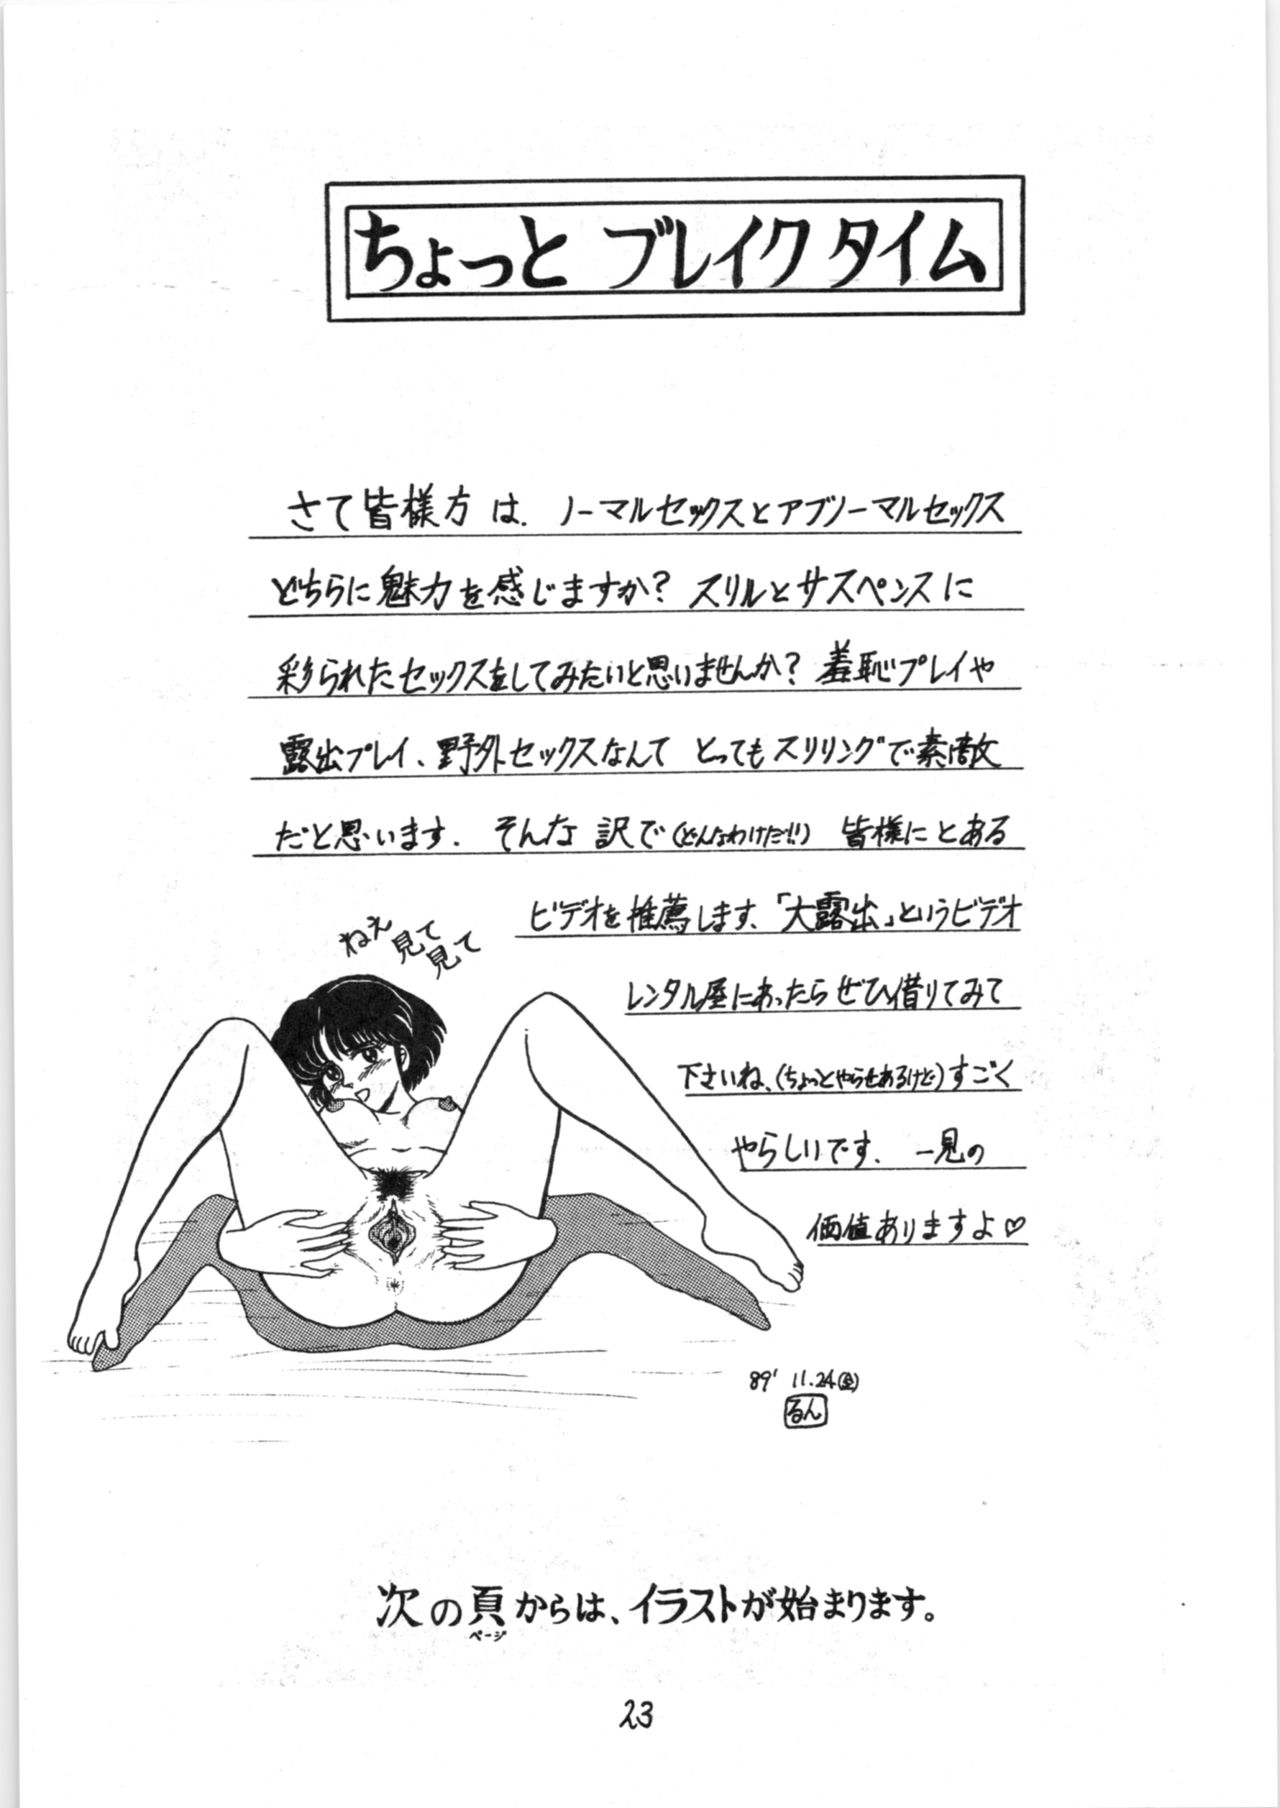 ちょっと ブレイク タイム
さて皆様方は、ノーマルセックスとアブノーマルセックス
どちらに魅力を感じますか？ スリルとサスペンスに
彩られたセックスをしてみたいと思いませんか？ 羞恥プレイや
露出プレイ、野外セックスなんて とってもスリリングで素敵
だと思います。 そんな訳で(どんなわけだ!!) 皆様にとある
ビデオを推薦します、「大露出」というビデオ
レンタル屋にあったらぜひ借りてみて
下さいね、(ちょっとやらせあるけど)すごく
やらしいです。 一見の
価値ありますよ♡
ねえ
見て
見て
89' 11.24(金)
るん
次の頁からは、イラストが始まります。
ページ
23